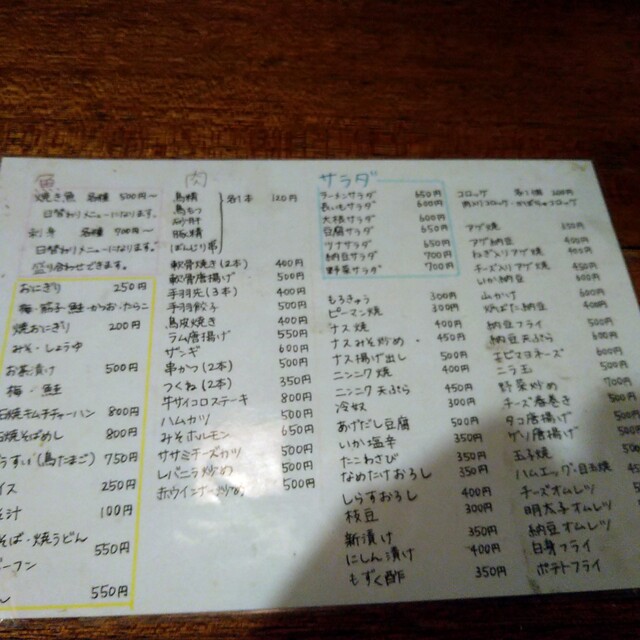 魚
焼き魚 各種 500円〜
日替わりメニューになります。
刺身 各種 700円〜
日替わりメニューになります。
盛り合わせできます。
おにぎり 250円
梅・筋子・鮭・かつお・たらこ
焼おにぎり 200円
みそ・しょうゆ
お茶漬け 500円
梅・鮭
石焼キムチチャーハン 800円
石焼そばめし 800円
ぞうすい(鳥たまご) 750円
ライス 250円
みそ汁 100円
焼そば・焼うどん 550円
ビーフン
550円
肉
鳥精 各1本 120円
鳥もつ
豚精
ぼんじり串
軟骨焼き(2本) 400円
軟骨唐揚げ 500円
手羽先(3本) 400円
手羽餃子 500円
鳥皮焼き 400円
ラム唐揚げ 550円
ザンギ 500円
串かつ(2本) 350円
つくね(2本) 400円
牛サイコロステーキ 800円
ハムカツ 500円
みそホルモン 650円
ササミチーズカツ 500円
レバニラ炒め 500円
赤ウインナー炒め 500円
サラダ
ラーメンサラダ 650円
600円
大根サラダ 600円
豆腐サラダ 650円
ツナサラダ 650円
納豆サラダ 700円
野菜サラダ 700円
もろきゅう 300円
ピーマン焼 300円
ナス焼 400円
ナスみそ炒め 450円
ナス揚げ出し 500円
ニンニク焼 400円
ニンニク天ぷら 450円
冷奴 300円
あげだし豆腐 400円
いか塩辛 350円
たこわさび 350円
なめたけおろし 350円
しらすおろし 400円
枝豆 300円
新漬け 350円
にしん漬け 400円
もずく酢 350円
コロッケ 各1個 200円
肉コロッケ・かぼちゃコロッケ
アゲ焼 350円
アゲ納豆 400円
ねぎ入りアゲ焼 400円
チーズ入りアゲ焼 450円
いか納豆 500円
山かけ 600円
炉ばた納豆 600円
納豆フライ 500円
納豆天ぷら 500円
エビマヨネーズ 600円
ニラ玉 500円
野菜炒め 700円
チーズ春巻き 500円
タコ唐揚げ
ゲソ唐揚げ
玉子焼
ハムエッグ・目玉焼
チーズオムレツ
明太子オムレツ
納豆オムレツ
白身フライ
ポテトフライ